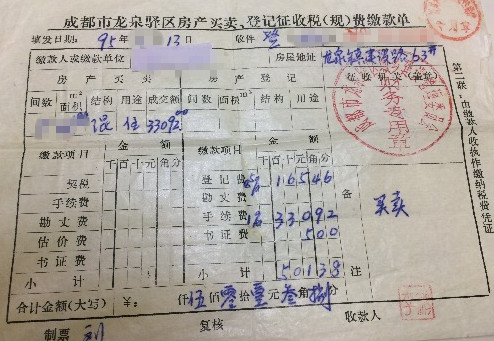 成都市龙泉驿区房产买卖、登记征收税(规)费缴款单
填发日期: 95 13日 收件 登
缴款人或缴款单位 房屋地址 龙泉镇 路63#
房产买卖 房产登记 征收机关(盖章)
间数 面积m² 结构 用途 成交额 间数 面积m² 结构 用途
混 住 33092.00
缴款项目 金额 缴款项目 金额
千百十元角分 千百十元角分
契税 登记费 5‰ 16546
手续费 勘丈费
勘丈费 手续费 1% 33092
估价费 书证费 500
书证费
小计 小计 50138
备注 买卖
合计金额(大写) ¥: 仟伍佰零拾壹元叁角捌分
制票 刘 复核 收款人
第二联:由缴款人收执作缴纳税费凭证